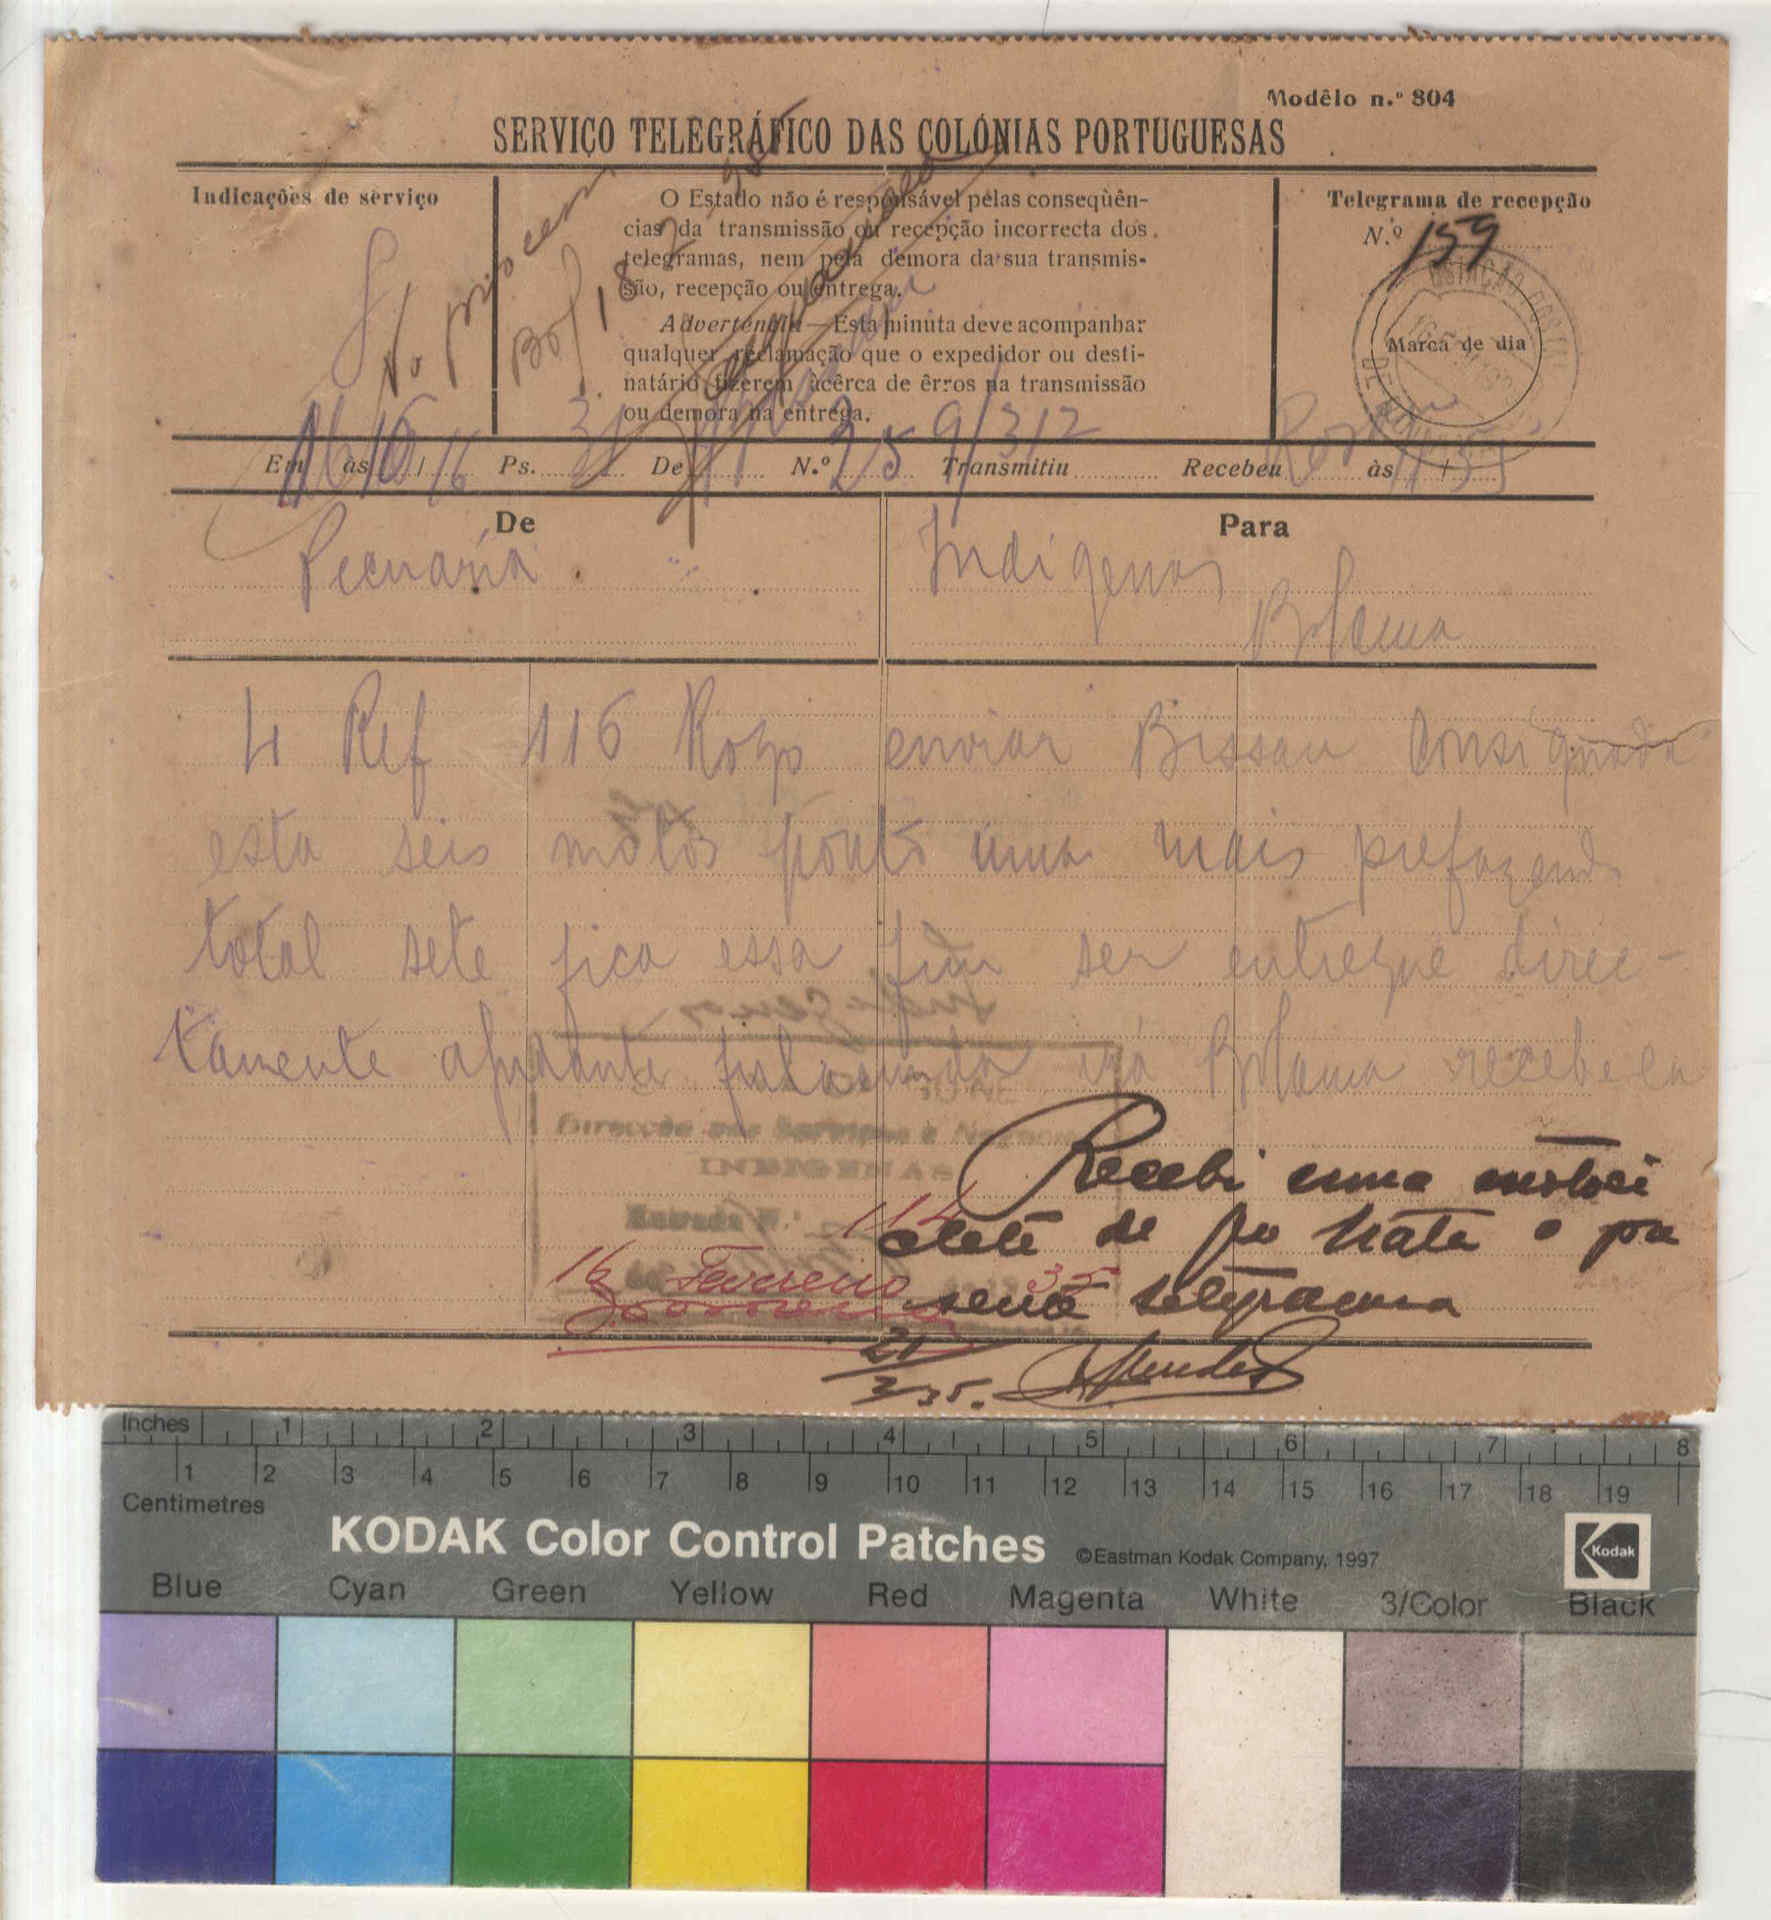 Modêlo n.º 804
SERVIÇO TELEGRÁFICO DAS COLÓNIAS PORTUGUESAS
Indicações de serviço
O Estado não é responsável pelas conseqüên-
cias da transmissão ou recepção incorrecta dos
telegramas, nem pela demora da sua transmis-
são, recepção ou entrega.
Advertência—Esta minuta deve acompanhar
qualquer reclamação que o expedidor ou desti-
natário fizerem àcêrca de êrros na transmissão
ou demora na entrega.
Telegrama de recepção
N.º 159
Marca de dia
No processo
Bol 18 2 935
Em 16 às 16 / 16 Ps. 31 De N.º 25 9/312 Transmitiu Recebeu às 11 35
De
Pecuária
Para
Indigenas
Bolama
4 Ref 116 Rogo enviar Bissau consignada
esta seis motos ponto uma mais prefazendo
total sete fica essa fim ser entregue direc-
tamente ajudante irá Bolama recebe-la
Direcção dos Serviços e Negocios
INDIGENAS
Entrada N.º 114
16 Fevereiro 35
Recebi uma motoci
clete de que trata o pre
sente telegrama
21/2 35. Mendes
Inches 1 2 3 4 5 6 7 8
1 2 3 4 5 6 7 8 9 10 11 12 13 14 15 16 17 18 19
Centimetres
KODAK Color Control Patches ©Eastman Kodak Company, 1997 Kodak
Blue Cyan Green Yellow Red Magenta White 3/Color Black